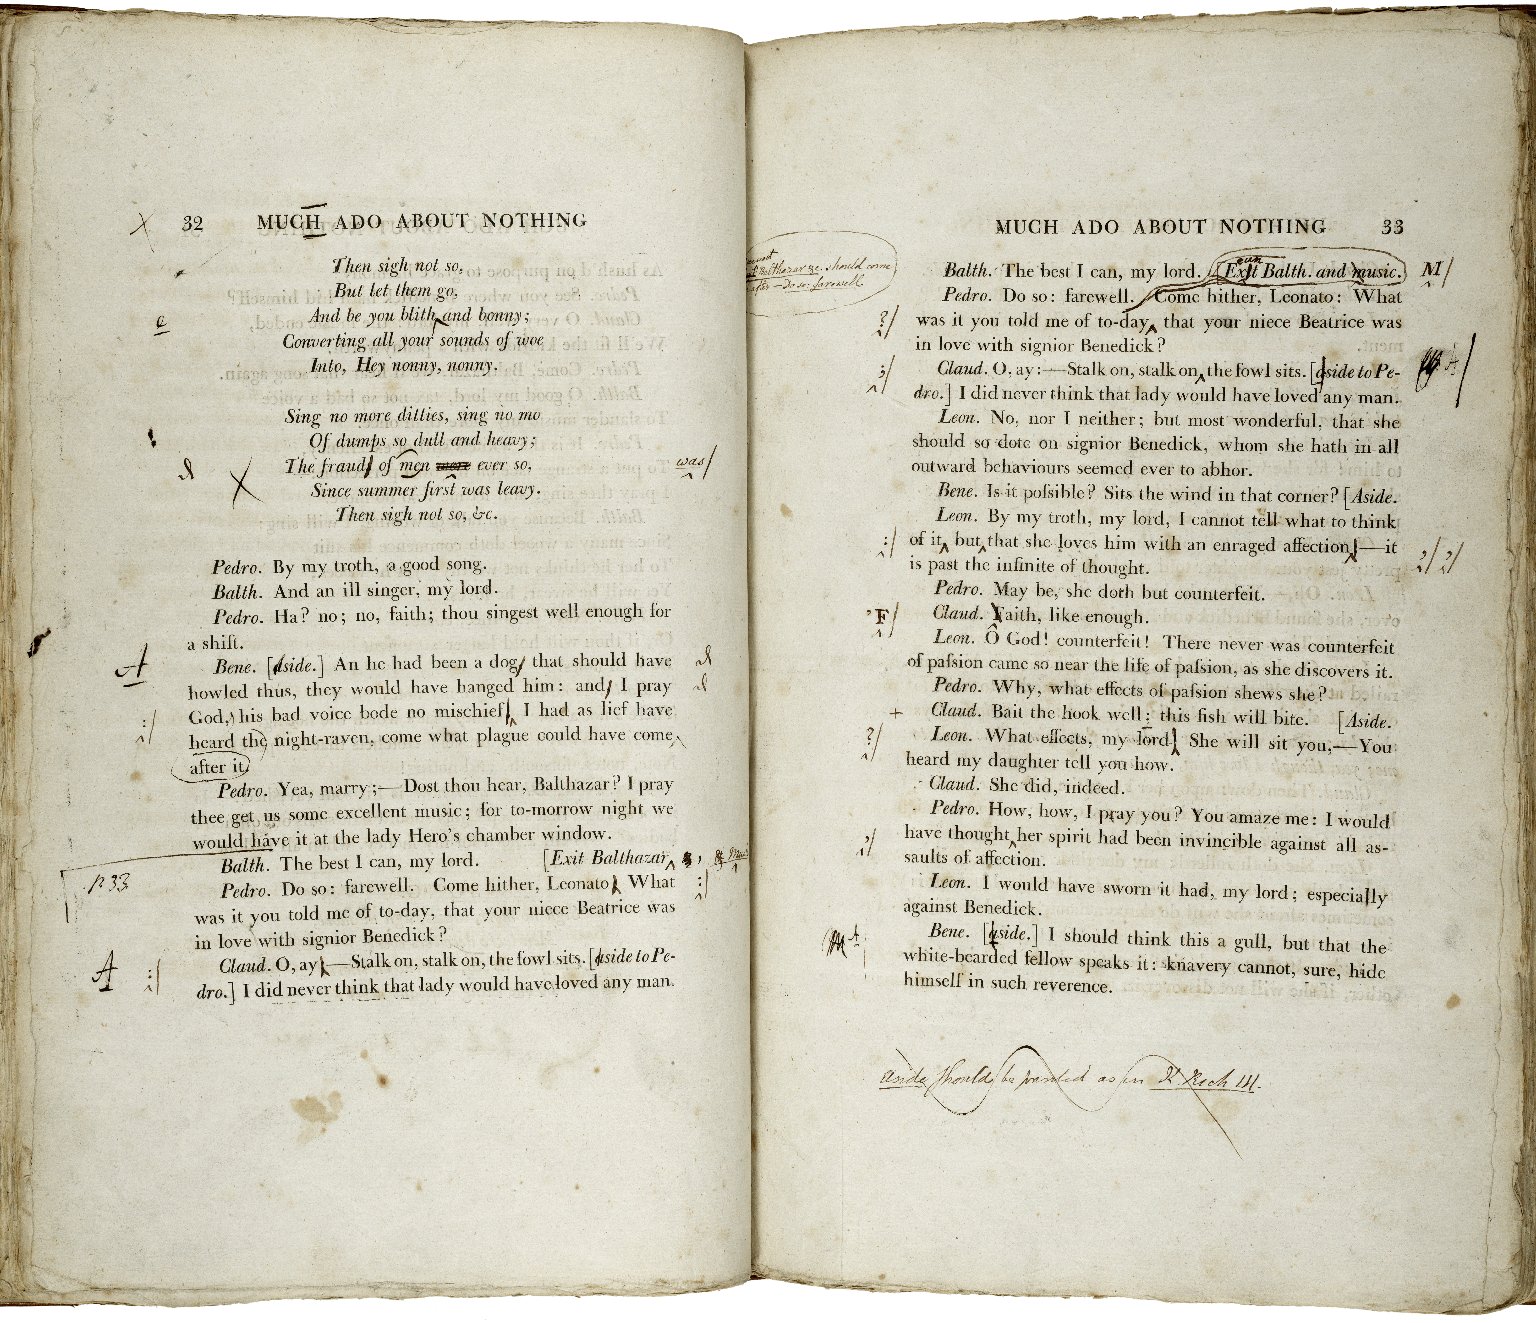 32 MUCH ADO ABOUT NOTHING
Then sigh not so,
But let them go,
And be you blith and bonny;
e
Converting all your sounds of woe
Into, Hey nonny, nonny.
Sing no more ditties, sing no mo
Of dumps so dull and heavy;
The frauds of men were ever so,
was/
Since summer first was leavy.
Then sigh not so, &c.
Pedro. By my troth, a good song.
Balth. And an ill singer, my lord.
Pedro. Ha? no; no, faith; thou singest well enough for
a shift.
A
Bene. [aside.] An he had been a dog, that should have
howled thus, they would have hanged him: and, I pray
God, his bad voice bode no mischief, I had as lief have
:/
heard the night-raven, come what plague could have come
after it.
Pedro. Yea, marry;—Dost thou hear, Balthazar? I pray
thee get us some excellent music; for to-morrow night we
would have it at the lady Hero's chamber window.
Balth. The best I can, my lord. [Exit Balthazar
p 33
Pedro. Do so: farewell. Come hither, Leonato, What
:/
was it you told me of to-day, that your niece Beatrice was
in love with signior Benedick?
A :/
Claud. O, ay,—Stalk on, stalk on, the fowl sits. [aside to Pe-
dro.] I did never think that lady would have loved any man.
MUCH ADO ABOUT NOTHING 33
Balthazar &c. should come
after—Do so: farewell
Balth. The best I can, my lord. [Exit Balth. and music.
eun
M/
Pedro. Do so: farewell. Come hither, Leonato: What
?/
was it you told me of to-day, that your niece Beatrice was
in love with signior Benedick?
Claud. O, ay:—Stalk on, stalk on, the fowl sits. [aside to Pe-
;/
A/
dro.] I did never think that lady would have loved any man.
Leon. No, nor I neither; but most wonderful, that she
should so dote on signior Benedick, whom she hath in all
outward behaviours seemed ever to abhor.
Bene. Is it possible? Sits the wind in that corner? [Aside.
Leon. By my troth, my lord, I cannot tell what to think
:/
of it, but that she loves him with an enraged affection,—it
is past the infinite of thought.
Pedro. May be, she doth but counterfeit.
'F/
Claud. Faith, like enough.
Leon. O God! counterfeit! There never was counterfeit
of passion came so near the life of passion, as she discovers it.
Pedro. Why, what effects of passion shews she?
+
Claud. Bait the hook well; this fish will bite. [Aside.
?/
Leon. What effects, my lord! She will sit you,—You
heard my daughter tell you how.
Claud. She did, indeed.
Pedro. How, how, I pray you? You amaze me: I would
,/
have thought her spirit had been invincible against all as-
saults of affection.
Leon. I would have sworn it had, my lord; especially
against Benedick.
A
Bene. [aside.] I should think this a gull, but that the
white-bearded fellow speaks it: knavery cannot, sure, hide
himself in such reverence.
Aside should be printed as in K. Rich III.